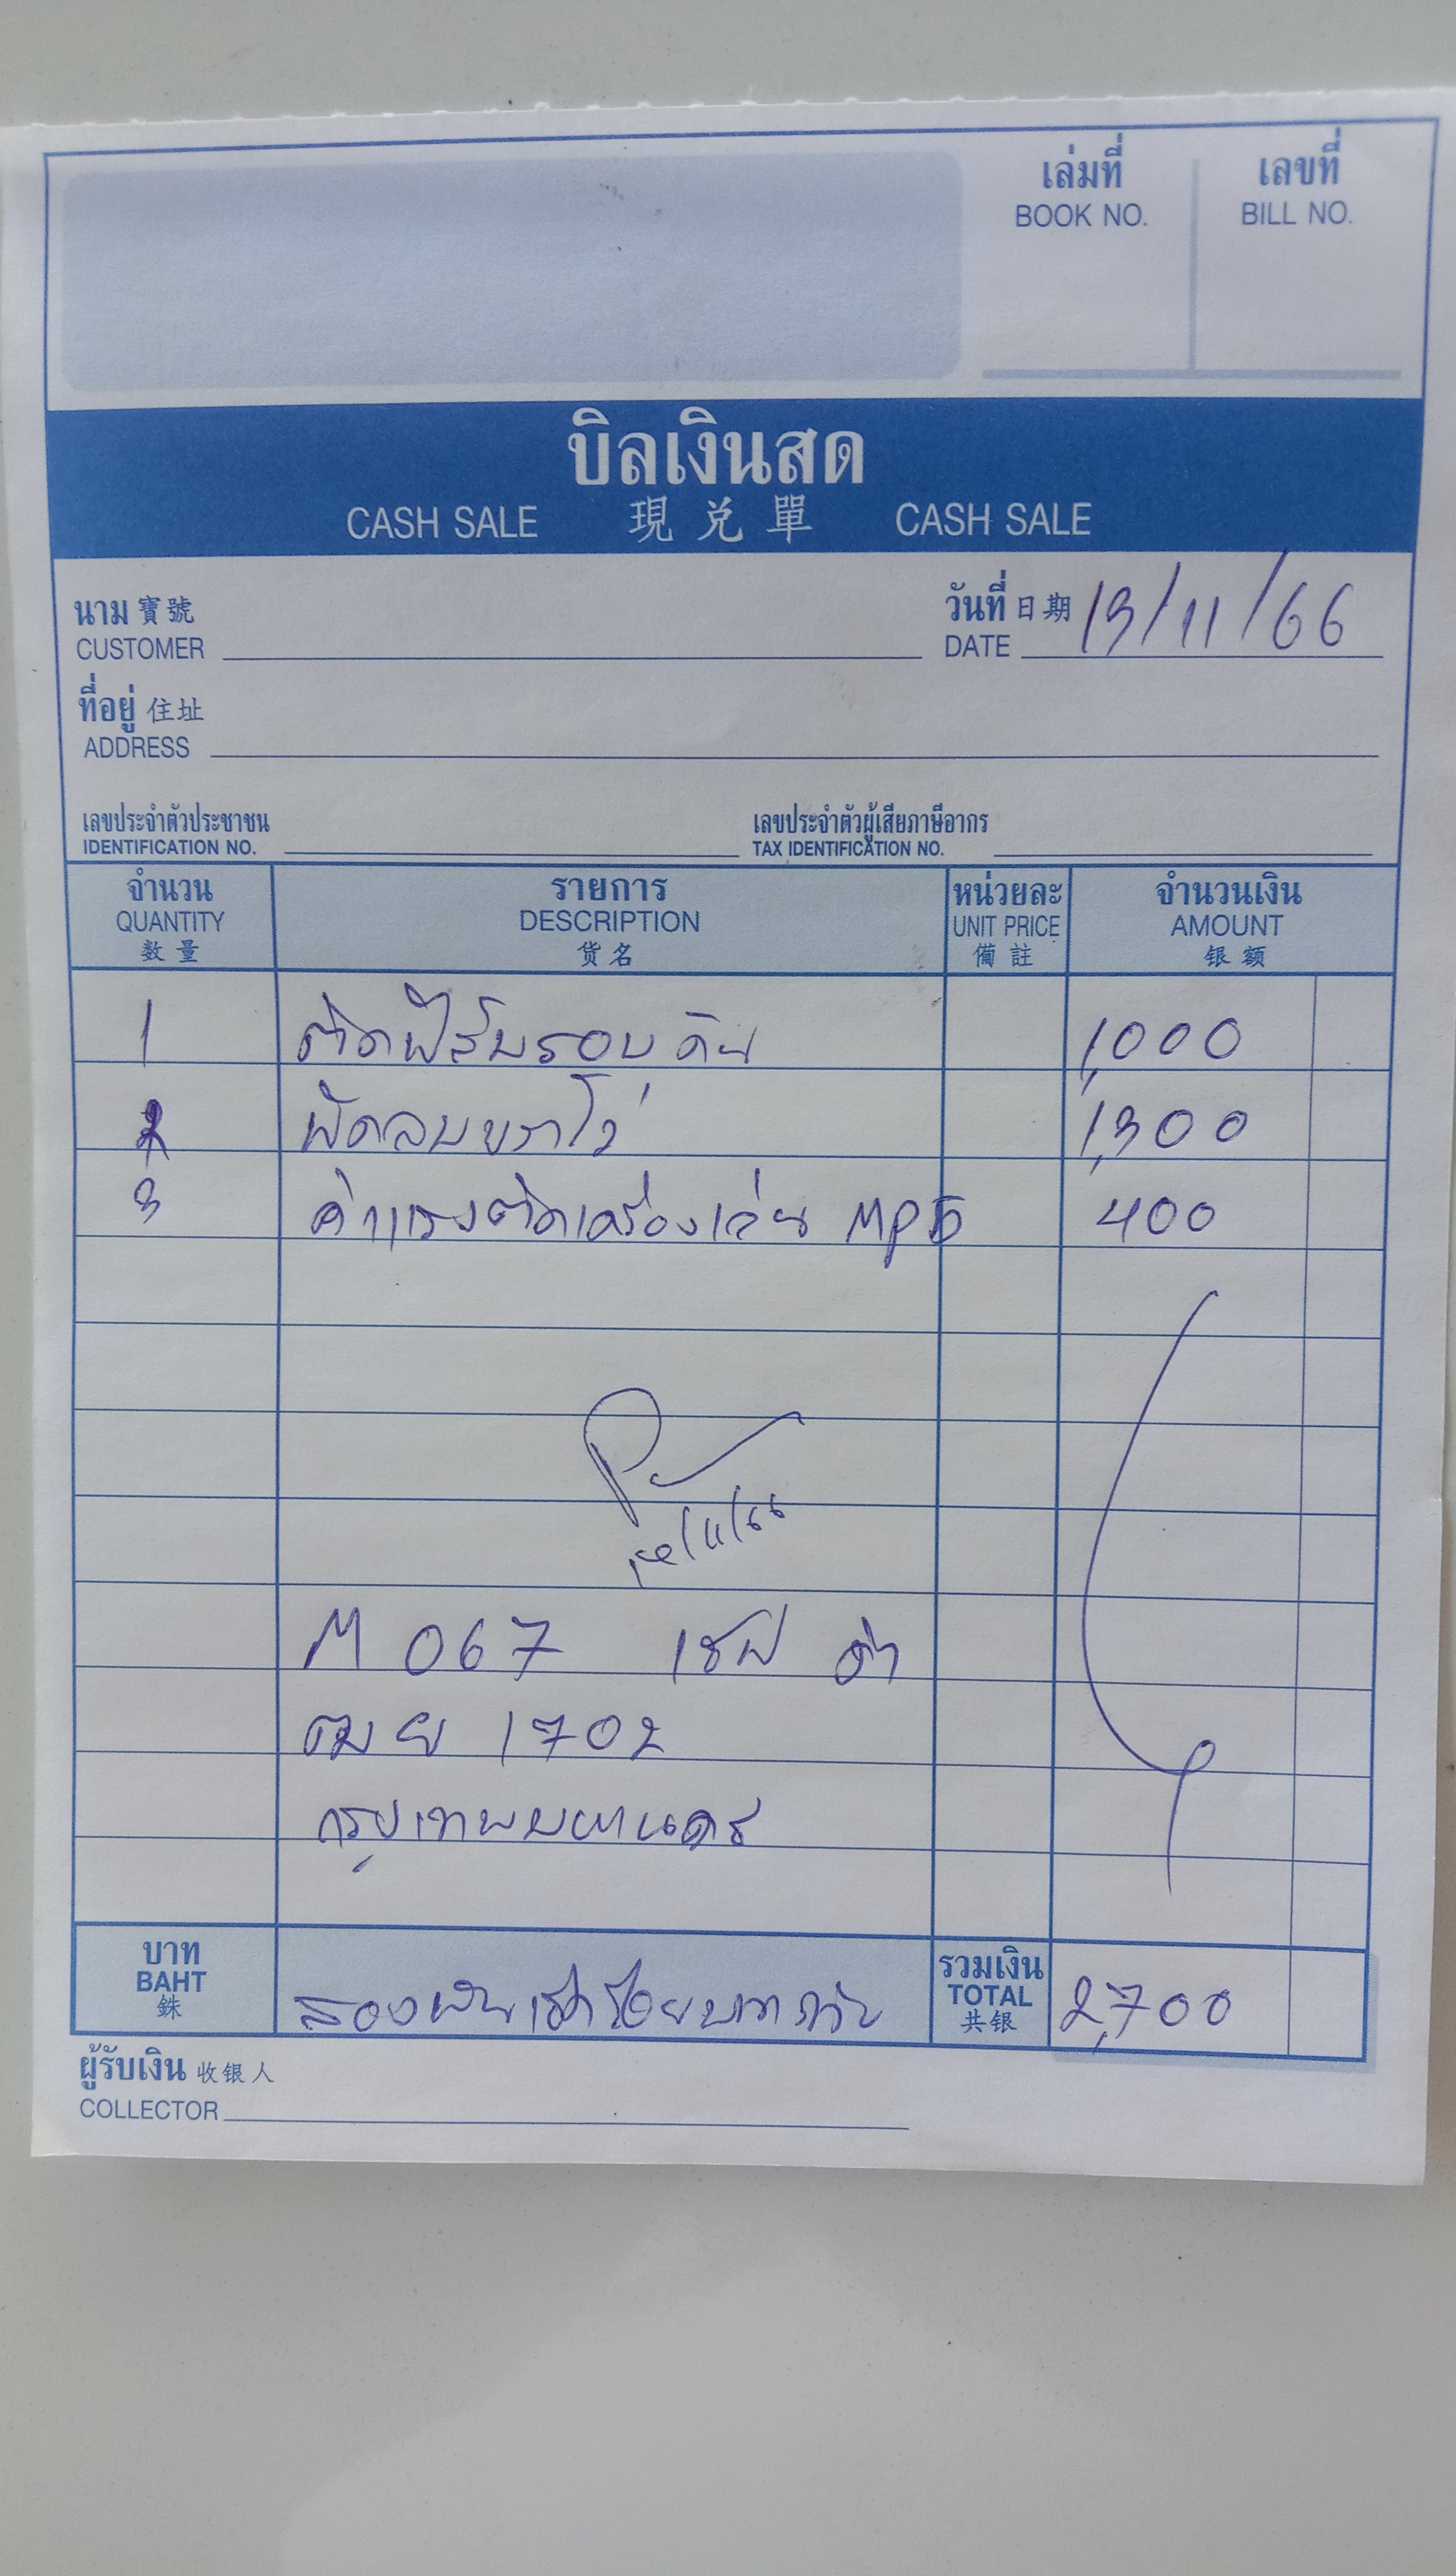 เล่มที่ เลขที่
BOOK NO. BILL NO.
บิลเงินสด
CASH SALE 現兑單 CASH SALE
นาม 寶號 วันที่ 日期 13/11/66
CUSTOMER DATE
ที่อยู่ 住址
ADDRESS
เลขประจำตัวประชาชน เลขประจำตัวผู้เสียภาษีอากร
IDENTIFICATION NO. TAX IDENTIFICATION NO.
จำนวน รายการ หน่วยละ จำนวนเงิน
QUANTITY DESCRIPTION UNIT PRICE AMOUNT
数量 货名 備註 银额
1 ติดฟิล์มรอบคัน 1,000
2 พัดลมขาโง่ 1,300
3 ค่าแรงติดเครื่องเล่น MP5 400
/11/66
M 067 ดำ
1702
กรุงเทพมหานคร
บาท รวมเงิน
BAHT สองพันเจ็ดร้อยบาทถ้วน TOTAL 2,700
銖 共银
ผู้รับเงิน 收银人
COLLECTOR